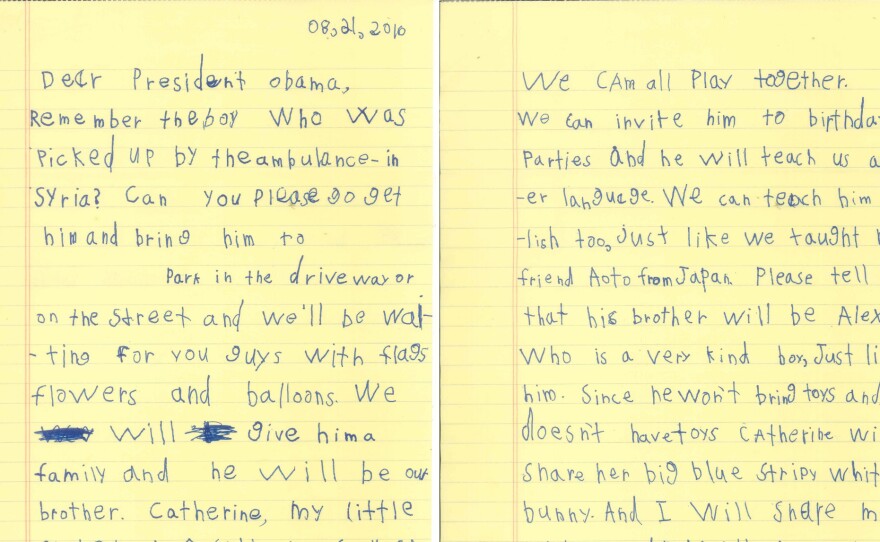 08,21, 2016
Dear President obama,
Remember the boy Who Was
Picked up by the ambulance-in
Syria? Can you please go get
him and bring him to
Park in the driveway or
on the street and we'll be wai-
-ting for you guys with flags
flowers and balloons. We
will give him a
family and he will be our
brother. Catherine, my little
We CAm all Play together.
We can invite him to birthda
Parties and he will teach us a
-er language. We can teach him
-lish too, just like we taught
friend Aoto from Japan. Please tell
that his brother will be Alex
Who is a very kind boy, Just li
him. Since he won't bring toys and
doesn't have toys CAtherine wi
Share her big blue Stripy whit
bunny. And I Will Share m